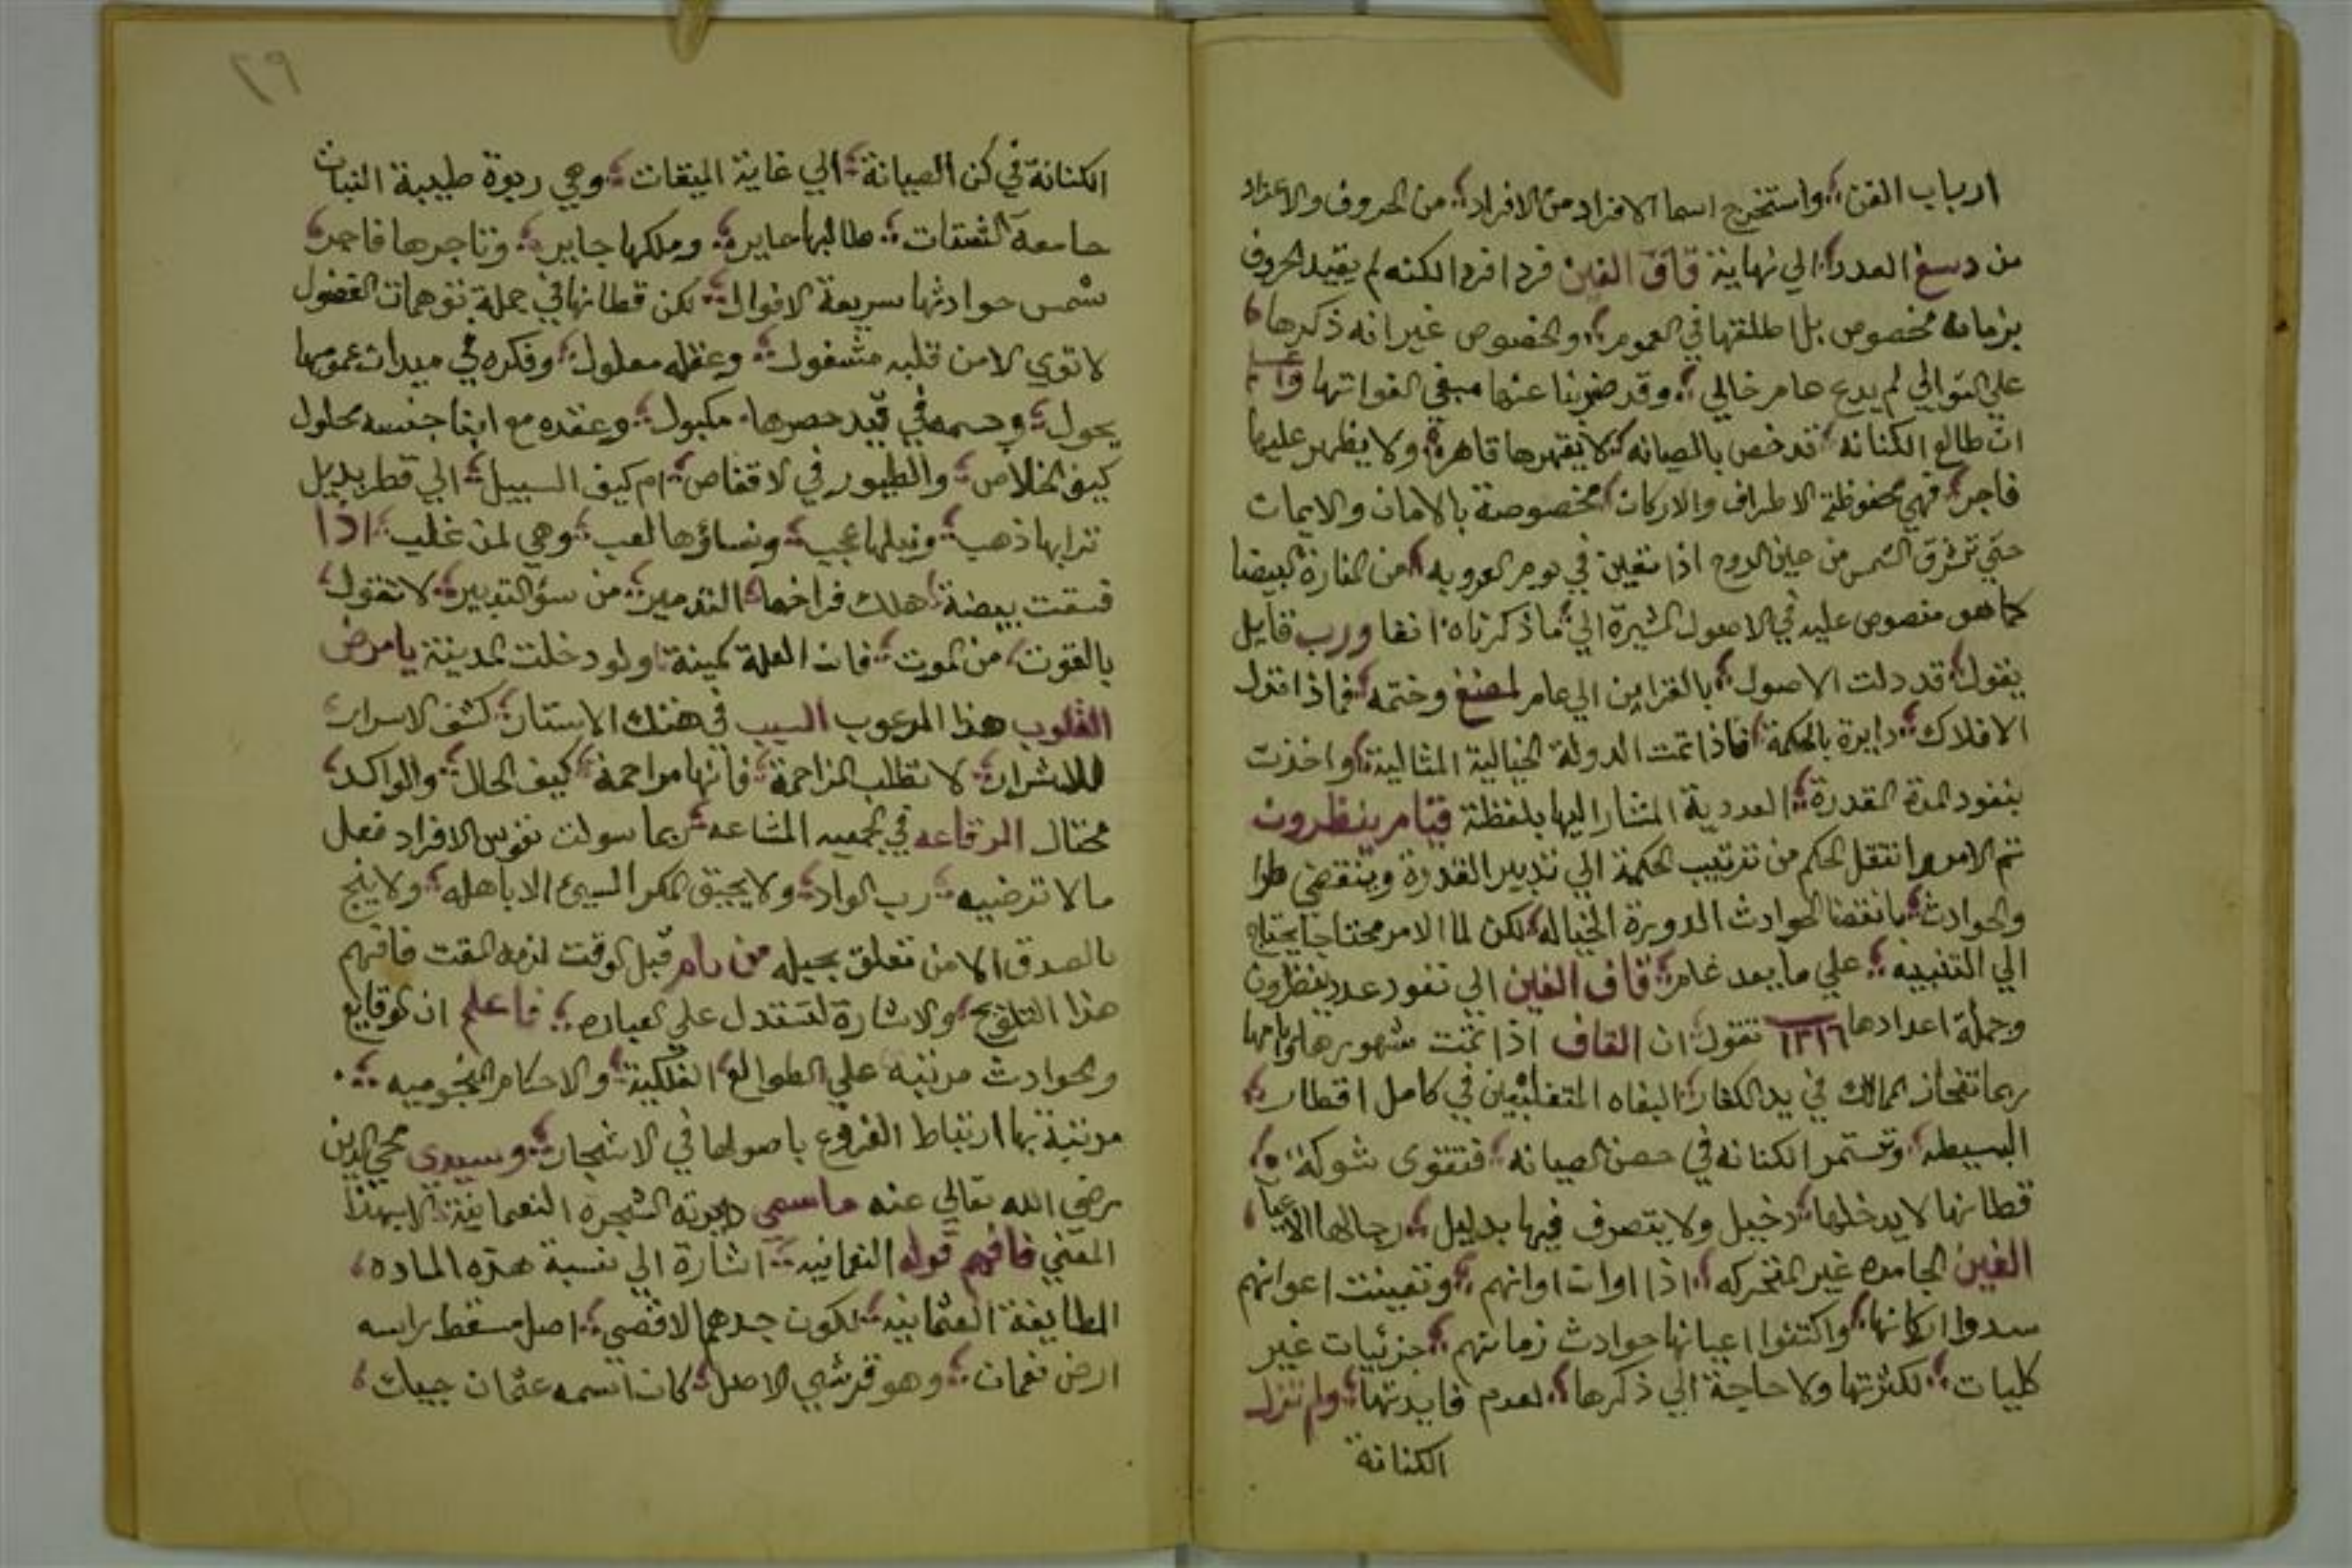 ارباب الفن واستخرج اسما الافراد من الافراد من الحروف والاعداد
من دسغ العدد الي نهاية قاف الغين فردا فردا لكنه لم يقيد الحروف
بزمان مخصوص بل اطلقها في العموم والخصوص غير انه ذكرها
علي التوالي لم يدع عامر خالي وقد ضربنا عنها مبغي الفواتها واعلم
ان طالع الكنانه قد خص بالصيانه لا يقهرها قاهرة ولا يظهر عليها
فاجر فهي محفوظة الاطراف والاركان مخصوصة بالامان والايمان
حتي تشرق الشمس من حين الدوح اذا تعين في يوم العروبه من المنارة البيضا
كما هو منصوص عليه في الاصول المشيرة الي ما ذكرناه انفا ورب قايل
يقول قد دلت الاصول بالقراين الي عامر لمضغ وختمه فماذا تقول
الافلاك دايرة بالحكمة فاذا تمت الدولة الخيالية المثالية واخذت
بنفود المدة القدرة العددية المشار اليها بلفظة قيام ينظرون
تم الامر وانتقل الحكم من ترتيب الحكمة الي تدبير القدرة وينقضي
والحوادث بانقضا الحوادث الدورة الخياله لكن لما الامر محتاجا يحتاج
الي التنبيه علي ما بعد غامر قاف الغين الي نفود عدد ينظرون
وجملة اعدادها ١٣١٦ تقول ان القاف اذا تمت شهورها وايامها
ربما تنحاز الممالك في يد الكفار البغاه المتغلبين في كامل اقطار
البسيطه وتستمر الكنانه في حصن الصيانه فتتقوى شوكة
قطانها لا يدخلها دخيل ولا يتصرف فيها بدليل رجالها الاعيا
الغين الجامده غير المتحركه اذا اوات اوانهم وتعينت اعوانهم
سدوا اركانها واكتفوا اعيانها حوادث زمانهم جزئيات غير
كليات لكثرتها ولا حاجة الي ذكرها لعدم فايدتها ولم تزل
الكنانة
٢٩
الكنانة في كن الصيانة الي غاية الميقات وهي ربوة طيبة النبات
جامعة الشتات طالبها حايره وملكها جايره وتاجرها فاجره
شمس حوادثها سريعة الافوال لكن قطانها في جملة توهمات الفضول
لا توي الا من قلبه مشغول وعقله معلول وفكره في ميدان غمومها
يجول وجسمه في قيد حصرها مكبول وعقده مع ابنا جنسه محلول
كيف الخلاص والطيور في الاقفاص ام كيف السبيل الي قطر بديل
ترابها ذهب ونيلها عجب ونساؤها لعب وهي لمن غلب اذا
فسقت بيضة هلك فراخها التدمير من سؤ التدبير لا تقول
بالفوت من الموت فان العلة كمينة ولو دخلت المدينة يا مرض
القلوب هذا المرعوب السبب في هتك الاستار كشف الاسرار
للاشرار لا تطلب المزاحمة فانها مراحمة كيف الحال والواكد
محتال الرقاعه في الجمعيه المشاعه ربما سولت نفوس الافراد فعل
ما لا ترضيه رب الواد ولا يحيق المكر السيئ الا باهله ولا ينج
بالصدق الا من تعلق بحبله من رام قبل الوقت لزمه المقت فافهم
هذا التلويح والاشارة لتستدل علي العباره فاعلم ان الوقايع
والحوادث مرتبه علي الطوالع الفلكية والاحكام النجوميه
مرتبة بها ارتباط الفروع باصولها في الاشجار وسيدي محي الدين
رضي الله تعالي عنه ما سمي دايرته الشجرة النعمانية الا بهذا
المعني فافهم قوله النعمانيه اشارة الي نسبة هذه الماده
الطايفة العثمانيه لكون جدهم الاقصي اصل مسقط راسه
ارض نعمان وهو قرشي الاصل كان اسمه عثمان جيبات